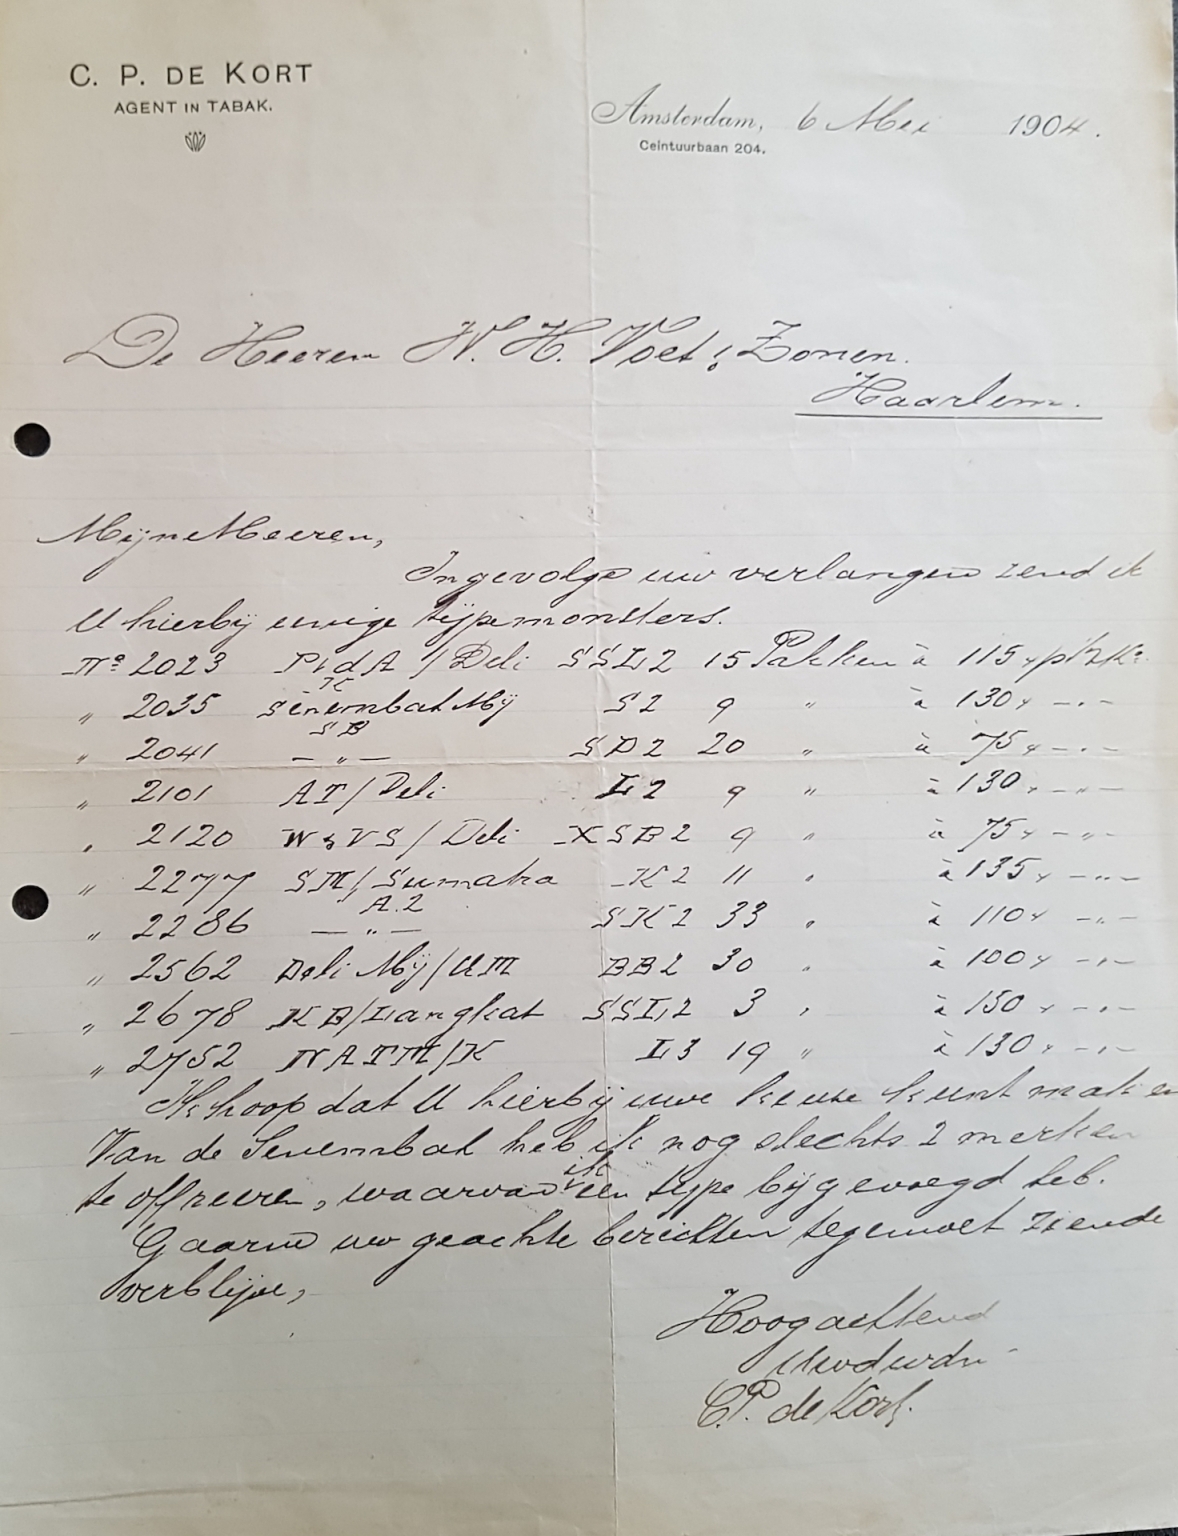 C. P. DE KORT
AGENT IN TABAK.
Amsterdam, 6 Mei 1904.
Ceintuurbaan 204.
De Heeren W. H. Voet & Zonen.
Haarlem.
Mijne Heeren,
Ingevolge uw verlangen zend ik
U hierbij eenige typemonsters.
No 2023 PtdA / Deli SSL2 15 Pakken à 115
" 2035 Senembah Mij S2 9 " à 130 " - " -
SB
" 2041 - " - SD2 20 " à 75 " - " -
" 2101 AT / Deli L2 9 " à 130 " - " -
" 2120 W & VS / Deli XSB2 9 " à 75 " - " -
" 2277 SM / Sumatra K2 11 " à 135 " - " -
A.2
" 2286 - " - SK2 33 " à 110 " - " -
" 2562 Deli Mij / UM BB2 30 " à 100 " - " -
" 2678 KB / Langkat SSL2 3 " à 150 " - " -
" 2752 NATM / K L3 19 " à 130 " - " -
Ik hoop dat U hierbij uwe keuze kunt maken
Van de Senembah heb ik nog slechts 2 merken
te offreeren, waarvan ik een type bijgevoegd heb.
Gaarne uw geachte berichten tegemoet ziende
verblijve,
Hoogachtend
C.P. de Kort.